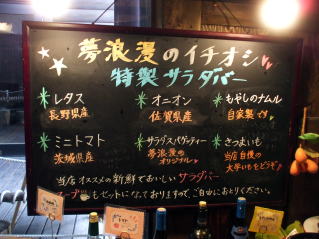 夢浪漫のイチオシ
特製サラダバー
レタス
長野県産
オニオン
佐賀県産
もやしのナムル
自家製です
ミニトマト
茨城県産
サラダスパゲッティー
夢浪漫の
オリジナル
さつまいも
当店自慢の
大学いもをどうぞ!
当店オススメの新鮮でおいしいサラダバー
スープもセットになっておりますので、ご自由におとりください。